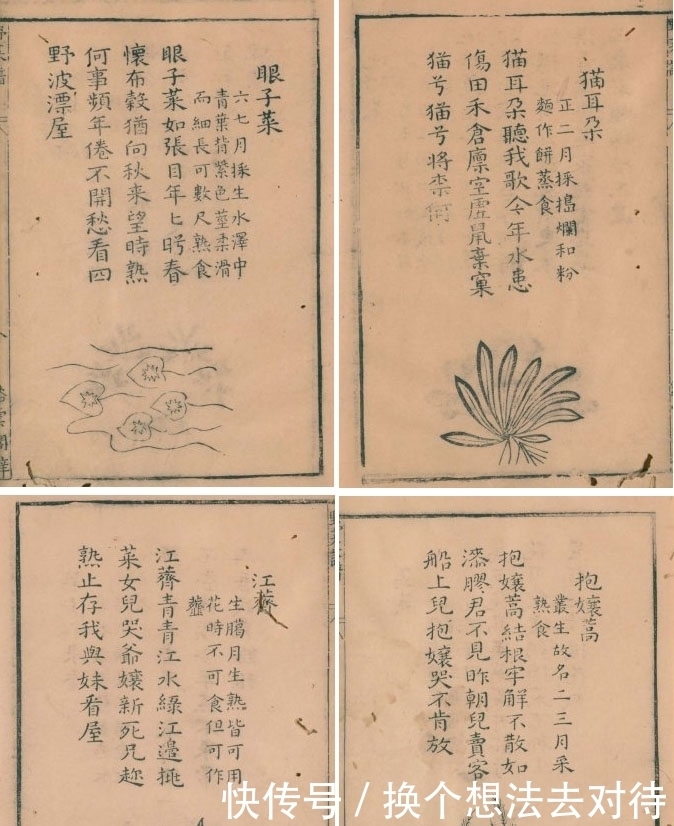 眼子菜
六七月採生水澤中
青葉背紫色莖柔滑
而細長可數尺熟食
眼子菜如張目年匕盻春
懷布穀猶向秋来望時熟
何事頻年倦不開愁看四
野波漂屋
猫耳朶
正二月採搗爛和粉
麵作餅蒸食
猫耳朶聽我歌今年水患
傷田禾倉廪空虚鼠棄窠
猫兮猫兮将柰何
江薺
生臈月生熟皆可用
花時不可食但可作
虀
江薺青青江水緑江邊挑
菜女兒哭爺孃新死兄趂
熟止存我與妹看屋
抱孃蒿
叢生故名二三月采
熟食
抱孃蒿結根牢解不散如
漆膠君不見昨朝兒賣客
船上兒抱孃哭不肯放
快传号 / 换个想法去对待